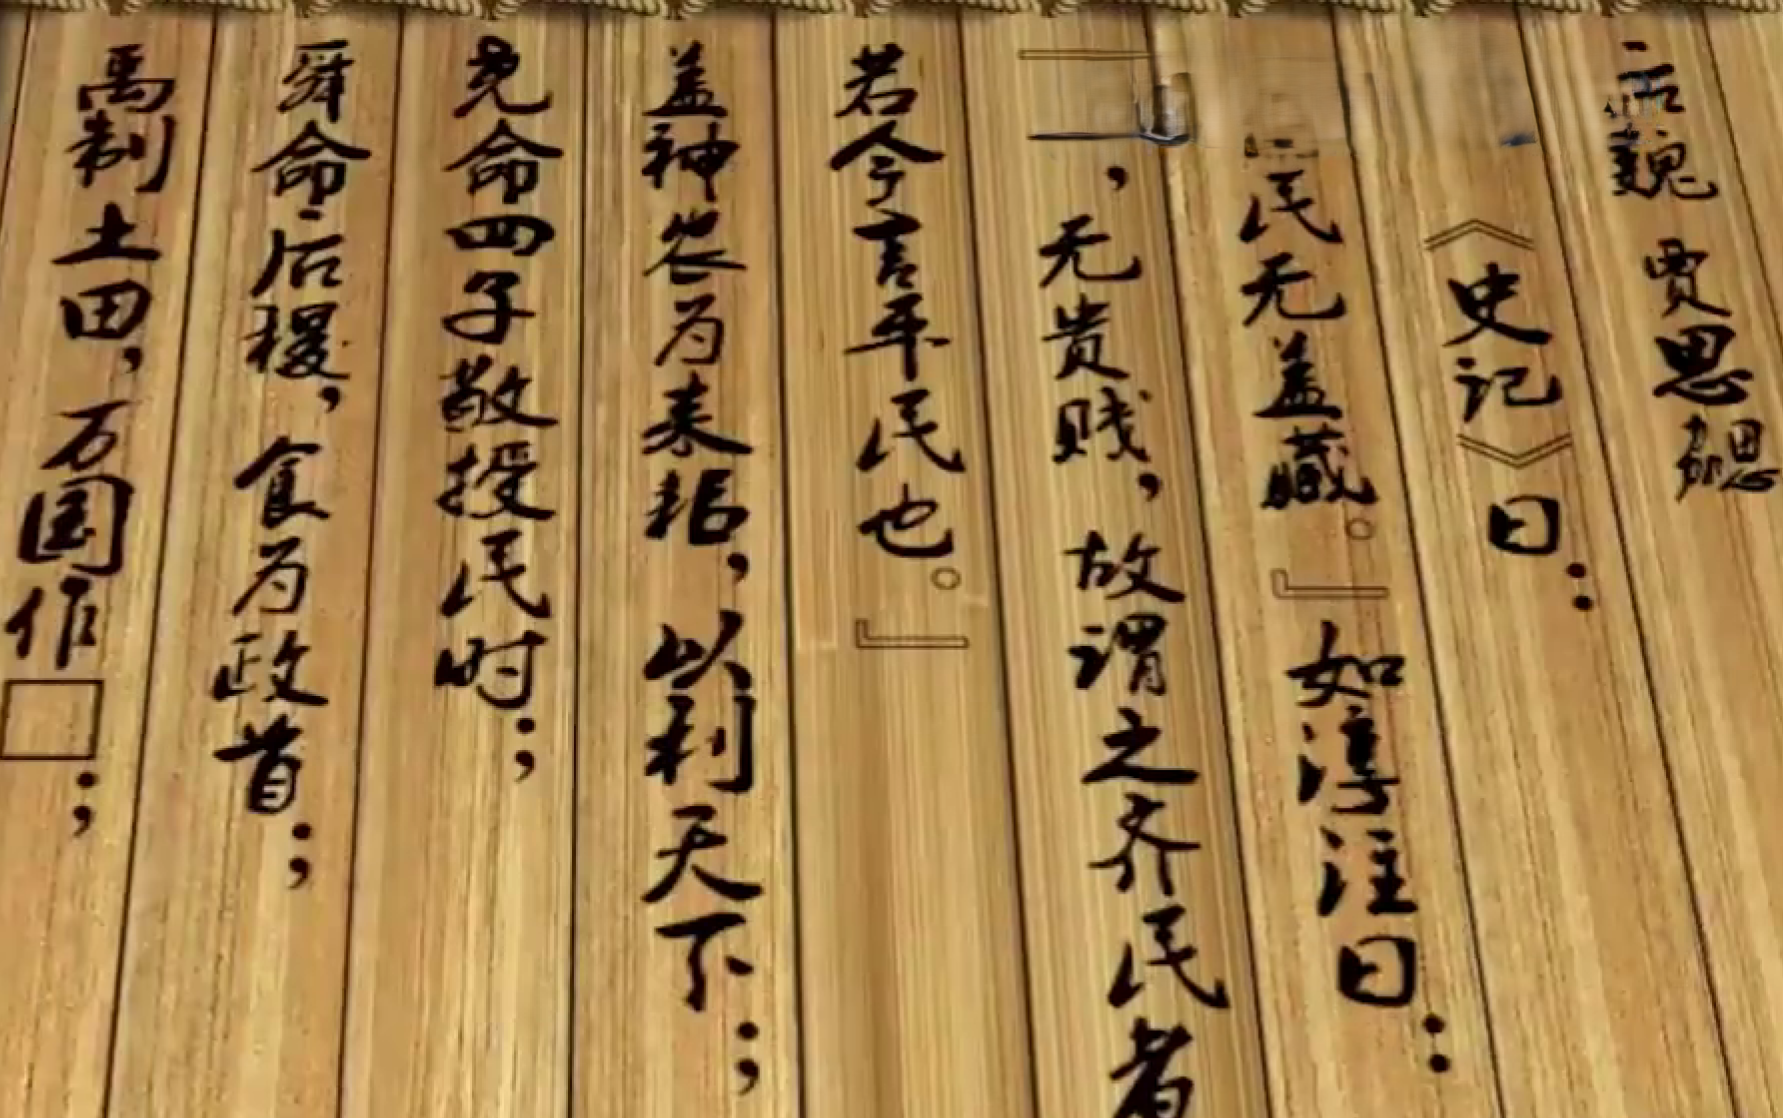 后魏 贾思勰
《史记》曰：
民无盖藏。』如淳注曰：
，无贵贱，故谓之齐民者
若今言平民也。』
盖神农为耒耜，以利天下；
尧命四子敬授民时；
舜命后稷，食为政首；
禹制土田，万国作□；